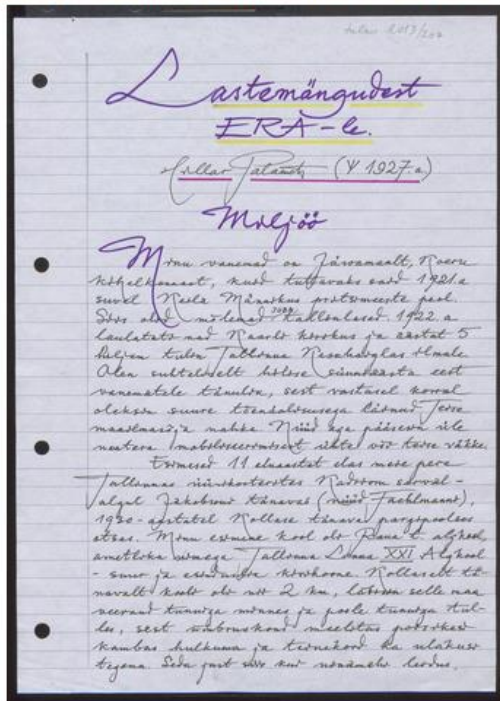 Lastemängudest
ERA-le.
Hillar Palamets (Ψ 1927.a)
Miljöö
Minu vanemad on Järvamaalt, Koeru
kihelkonnast, kuid tuttavaks said 1921.a
suvel Keila Männikus
Siis olid mõlemad juba tallinlased. 1922.a
laulatati nad Kaarli kirikus ja aastat 5
hiljem tulin Tallinna ilmale
Olen suhteliselt hilise sünniaasta eest
vanematele tänulik, sest vastasel korral
oleksin suure tõenäolisusega läinud Teise
maailmasõja nahka Nüüd aga pääsesin üle
mobiliseerimisest ühte või teise väkke.
Esimesed 11 eluaastat elas meie pere
Tallinnas üürikorterites Kadrioru serval -
algul Jakobsoni tänavas (nüüd Faehlmanni),
1930-aastatel Kollase tänava pargipoolses
otsas. Minu esimene kool oli Raua t. algkool,
ametliku nimega Tallinna Linna XXI Algkool
- suur ja esinduslik kivihoone. Kollaselt tä-
navalt kooli oli nii 2 km, läbisin selle maa
veerand tunniga minnes ja poole tunniga tul-
les, sest ümbruskond meelitas poisikesi
kambas hulkuma ja teinekord ka ulakusi
tegema Seda just siis kui